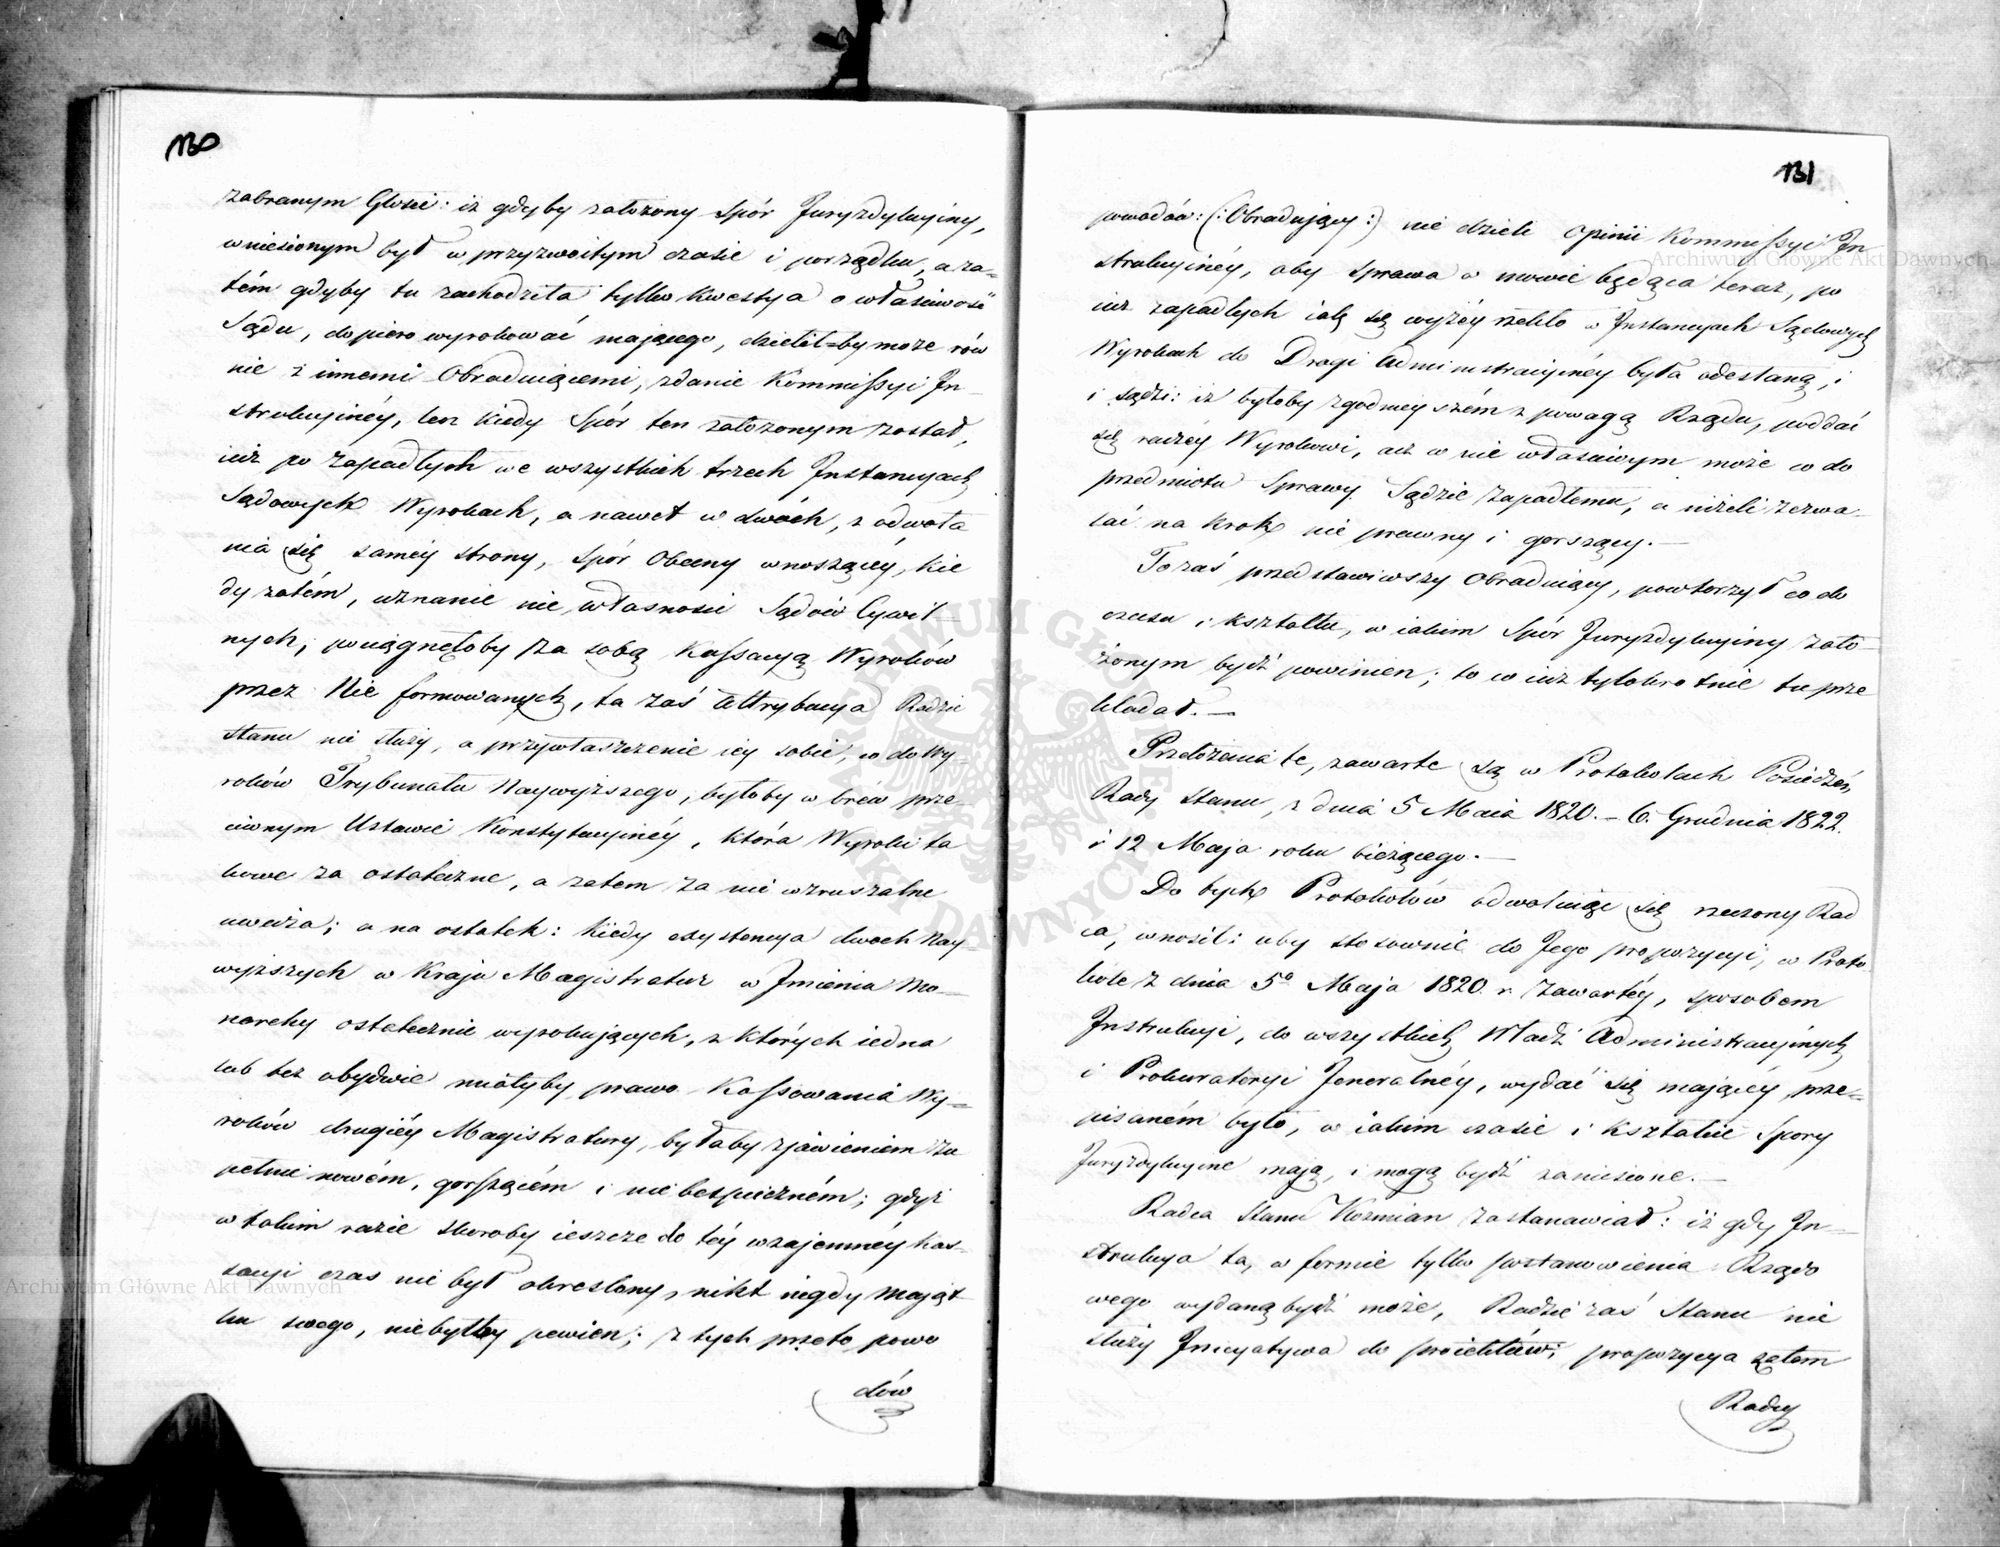 130
zabranym Głosie: iż gdyby założony Spór Juryzdykcyiny,
wniesionym był w przyzwoitym czasie i porządku, a za-
tém gdyby tu zachodziła tylko kwestya o właściwość
Sądu, dopiero wyrokować maiącego, dzielił=by może rów
nie z innemi Obraduiącemi, zdanie Kommissyi In-
strukcyinéy, lecz kiedy Spór ten założonym został,
iuż po zapadłych we wszystkich trzech Instancyach
Sądowych Wyrokach, a nawet w dwóch, z odwoła
nia się saméy strony, Spór Obecny wnoszącéy, kie
dy zatém, uznanie nie własności Sądów Cywil-
nych, pociągnęłoby za sobą Kassacyą Wyroków
przez Nie formowanych, ta zaś Attrybucya Radzie
Stanu nie służy, a przywłaszczenie iey sobie, co do Wy-
roków Trybunału Naywyższego, byłoby w brew prze-
ciwnym Ustawie Konstytucyinéy, która Wyroki ta
kowe za ostateczne, a zatem za nie wzruszalne
uważa; a na ostatek: kiedy exystencya dwoch Nay-
wyższych w Kraju Magistratur w Imieniu Mo-
narchy ostatecznie wyrokujących, z których iedna
lub też obydwie miałyby prawo Kassowania Wy=
roków drugiéy Magistratury, byłaby zjawieniem zu
pełnie nowém, gorszącém i nie bezpieczném; gdyż
w takim razie skoroby ieszcze do téy wzajemnéy kas-
sacyi czas nie był określony, nikt nigdy mająt
ku swego, niebyłby pewien; z tych przeto powo
dów
131
powodów: (:Obradujący:) nie dzieli Opinii Kommissyi In
strukcyinéy, aby sprawa o mowie będąca teraz, po
iuż zapadłych iak się wyżéy rzekło w Instancyach Sądowych
Wyrokach do Drogi Administracyinéy była odesłaną, i
i sądzi: iż byłoby zgodnieyszém z powagą Rządu, poddać
się raczéy Wyrokowi, acz w nie właściwym może co do
przedmiotu Sprawy Sądzie zapadłemu, a niżeli zezwa-
lać na krok nie prawny i gorszący.—
To zaś przedstawiwszy Obraduiący, powtorzył co do
czasu i kształtu, w iakim Spór Juryzdykcyiny zało-
żonym bydź powinien; to co iuż tylokrotnie tu prze
kładał.—
Przełożenia te, zawarte są w Protokołach Posiedzeń
Rady Stanu, z dnia 5 Maia 1820.– 6. Grudnia 1822.
i 12 Maja roku bieżącego.—
Do tych Protokołów odwołuiąc się rzeczony Rad
ca, wnosił: aby stosownie do Jego propozycyi, w Proto
kole z dnia 5° Maja 1820. r. zawartéy, sposobem
Instrukcyi, do wszystkich Władz Administracyinych
i Prokuratoryi Jeneralnéy, wydać się mającéy prze-
pisaném było, w iakim czasie i kształcie Spory
Juryzdykcyine mają, i mogą bydź zaniesione.—
Radca Stanu Kozmian zastanawiał: iż gdy In-
strukcya ta, w formie tylko postanowienia Rządo
wego wydaną bydź może, Radzie zaś Stanu nie
służy Inicyatywa do proiektów; propozycya zatem
Radcy
Archiwum Główne Akt Dawnych
Archiwum Główne Akt Dawnych
ARCHIWUM GŁÓWNE AKT DAWNYCH